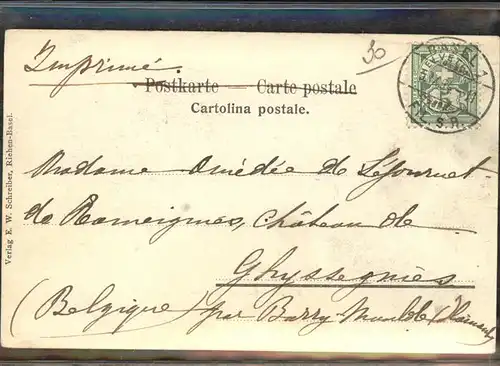 Imprimé
30
Postkarte — Carte postale
Cartolina postale.
Madame Amédée de Lefournet-
de Rameignies, Château de
Ghyssegnies
(Belgique) par Barry Maulde (Hainaut)
Verlag E. W. Schreiber, Riehen-Basel.